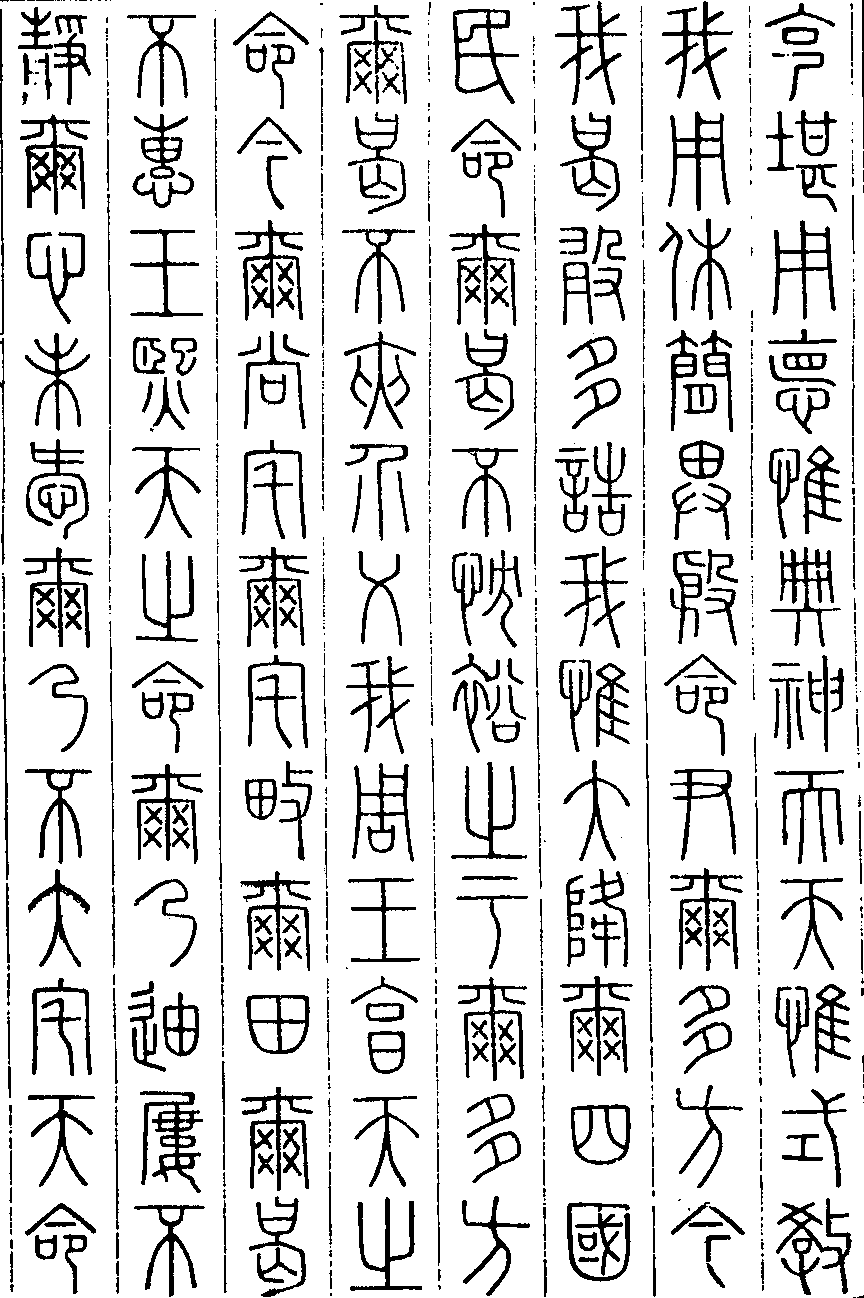 克堪用悳惟典神天天惟式教
我用休簡畀殷命尹爾多方今
我曷敢多誥我惟大降爾四國
民命爾曷不忱裕之于爾多方
爾曷不夾介乂我周王享天之
命今爾尚宅爾宅畋爾田爾曷
不惠王熙天之命爾乃迪屢不
靜爾心未愛爾乃不大宅天命